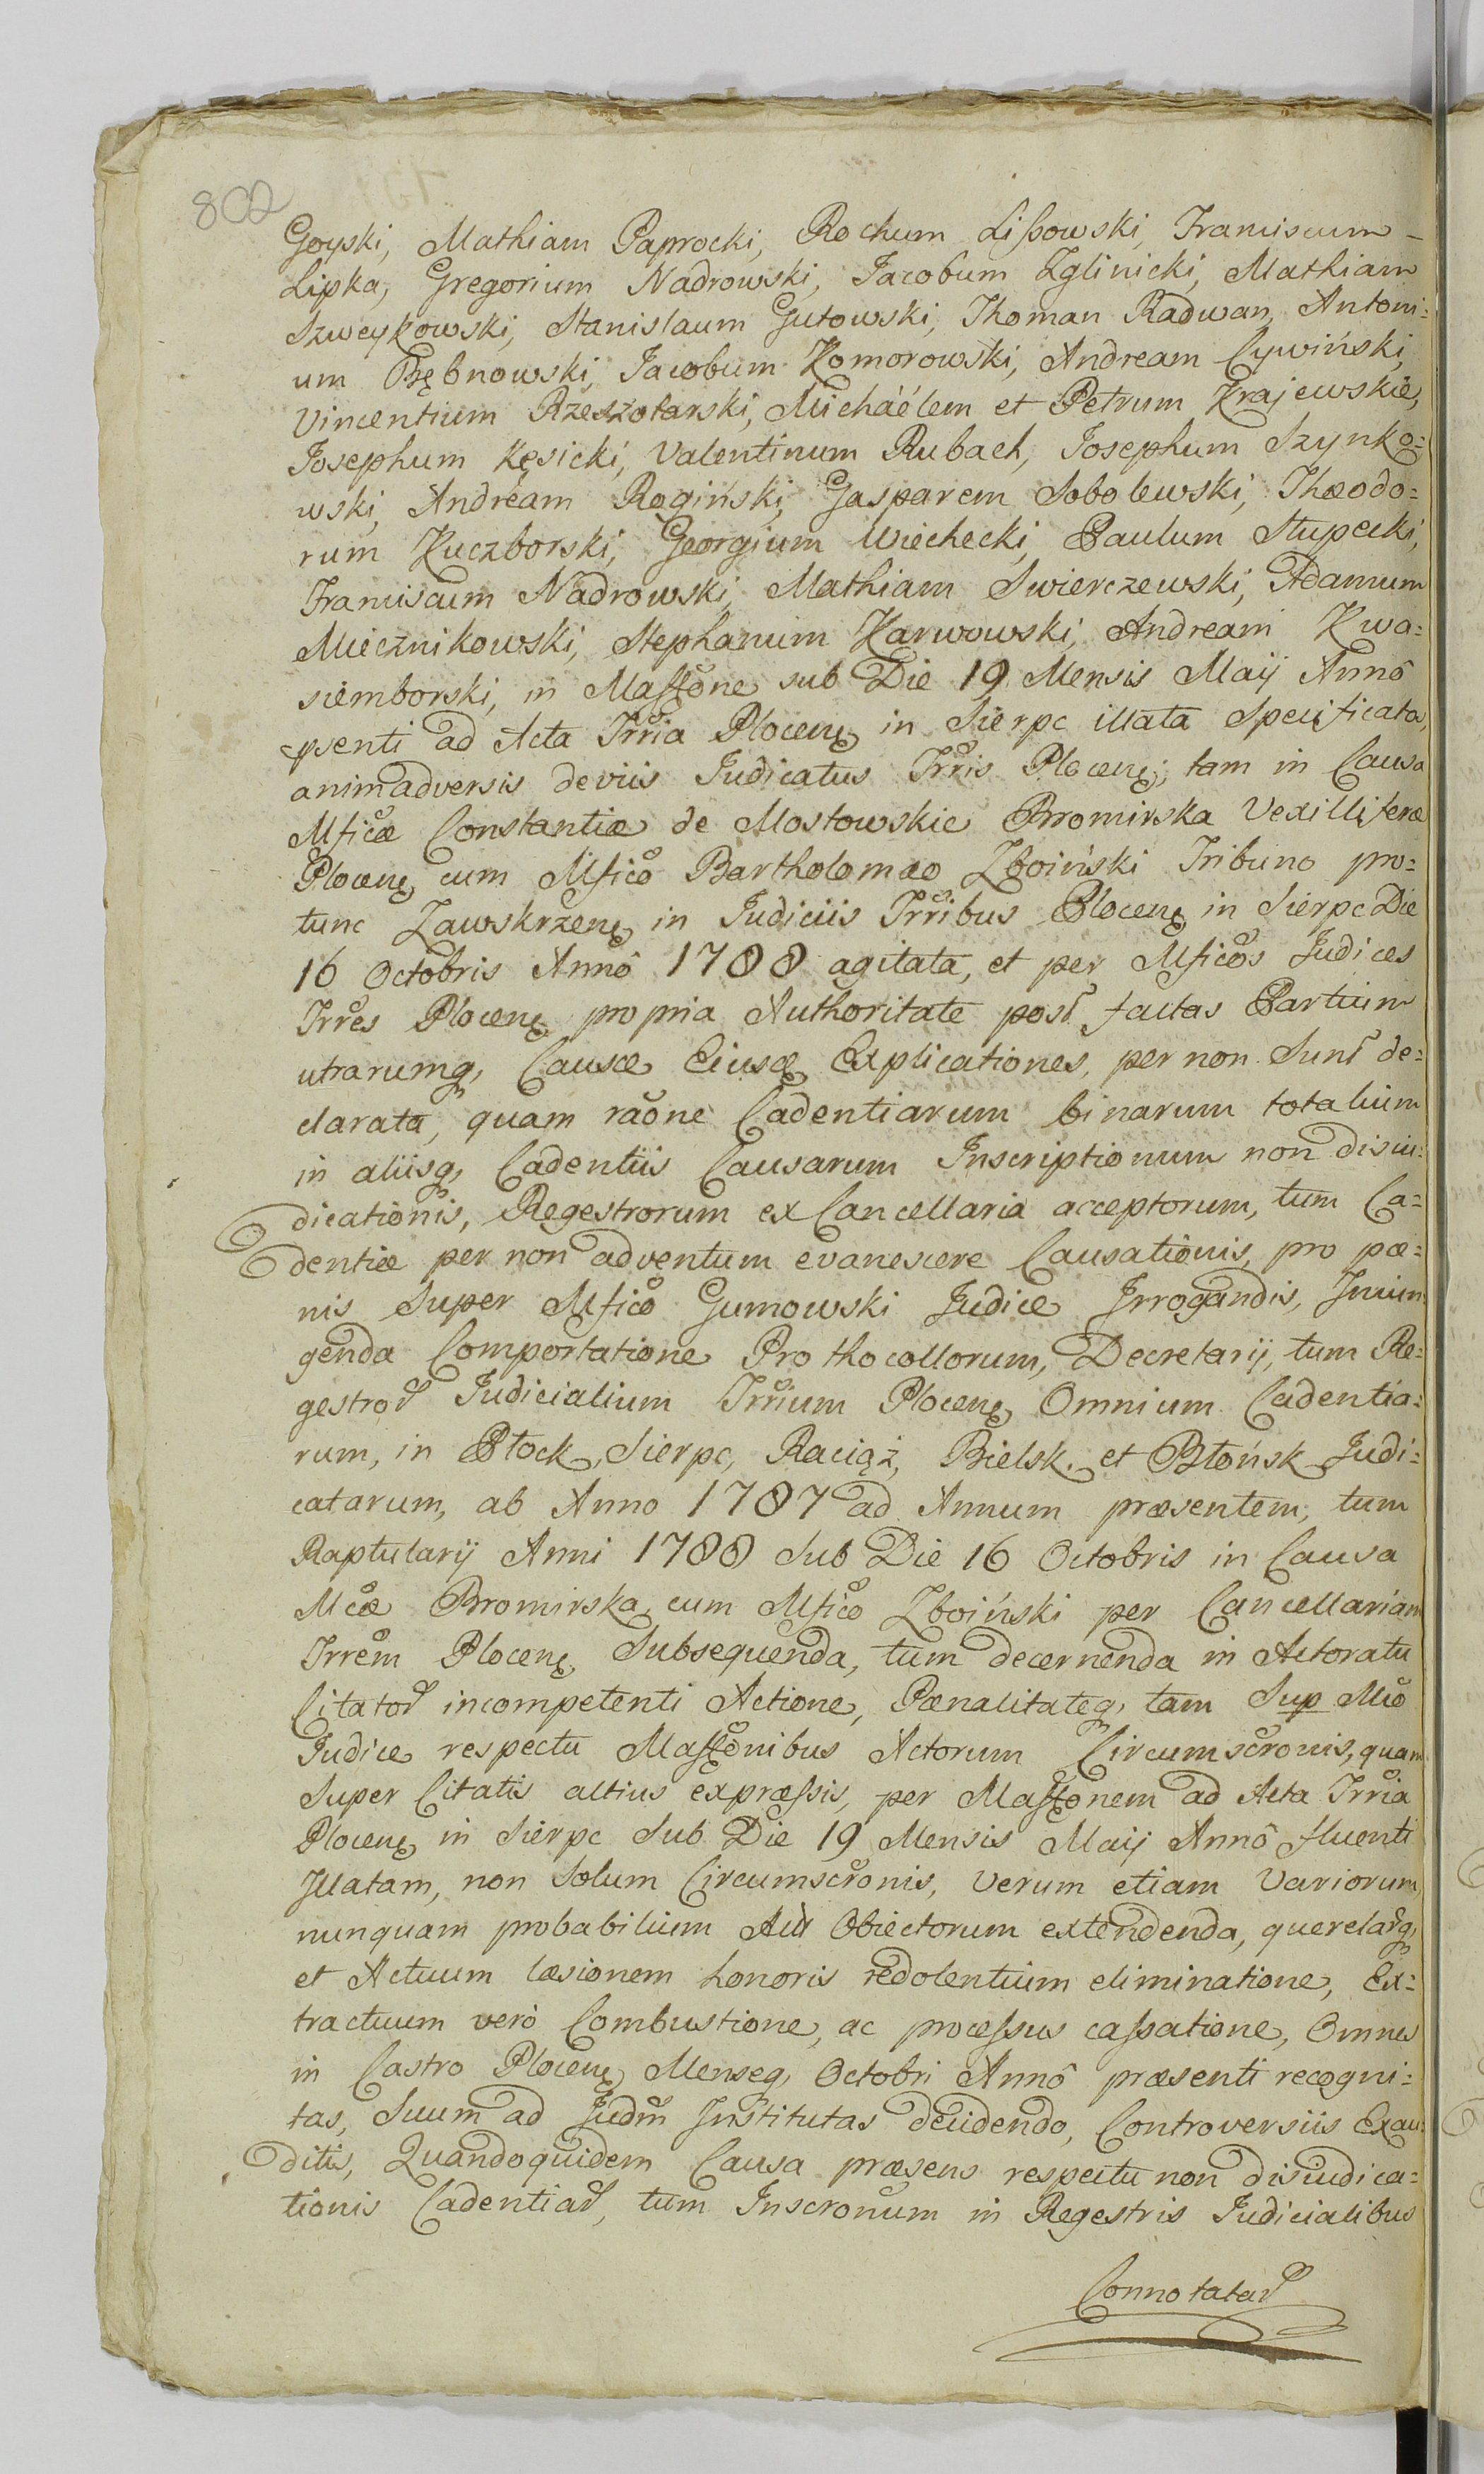 802
Goyski, Mathiam Paprocki, Rochum Lissowski, Franciscum –
Lipka, Gregorium Nadrowski, Jacobum Zglinicki, Mathiam
Szweykowski, Stanislaum Gutowski, Thoman Radwan, Antoni=
um Bębnowski, Jacobum Komorowski, Andream Cywiński,
Vincentium Rzeszotarski, Michaélem et Petrum Krajewskie,
Josephum Kęsicki, Valentinum Rubach, Josephum Szynko=
wski, Andream Rogiński, Gasparem Sobolewski, Theodo=
rum Kuczborski, Georgium Wiechecki, Paulum Stupecki,
Franciscum Nadrowski, Mathiam Swierczewski, Adamum
Miecznikowski, Stephanum Karwowski, Andream Kwa=
siemborski, in Maństone sub Die 19 Mensis Maij Annô
psenti ad Acta Trria Plocenę in Sierpc illata Specificata,
animadversis deviis Judicatus Trris Plocenę, tam in Causa
Mficæ Constantiæ de Mostowskie Bromirska Vexilliferæ
Plocenę cum Mfico Bartholomæo Zboiński Tribuno pro=
tunc Zawskrzenę in Judiciis Trribus Plocenę in Sierpc Die
16 Octobris Annô 1788 agitata, et per Mficos Judices
Trres Plocenę propria Authoritate post factas Partium
utrarumq, Causæ Eiusdę Explicationes, per non Sunt de=
clarata, quam raone Cadentiarum binarum totalium
in aliisq, Cadentiis Causarum Inscriptionum non disiu=
dicationis, Regestrorum ex Cancellaria acceptorum, tum Ca=
dentiæ per non adventum evanescere Causationis, pro pæ=
nis Super Mfico Gumowski Judice Irrogandis, Iniun=
genda Comportatione Prothocollorum, Decretarij, tum Re=
gestror Judicialium Trrium Plocenę Omnium Cadentia=
rum, in Płock, Sierpc, Raciąż, Bielsk et Płońsk Judi=
catarum, ab Anno 1787 ad Annum præsentem, tum
Raptularij Anni 1788 Sub Die 16 Octobris in Causa
Mcæ Bromirska cum Mfico Zboiński per Cancellariam
Trrem Plocenę Subsequenda, tum decernenda in Actoratu
Citator incompetenti Actione, Pænalitateq, tam Sup Mco
Judice respectu Mastonibus Actorum Circumscronis, quam
Super Citatis altius expræssis, per Mastonem ad Acta Trria
Plocenę in Sierpc Sub Die 19 Mensis Maij Annô fluenti
Illatam, non Solum Circumscronis, verum etiam Variorum
nunquam probabilium Obiectorum extendenda, querelarq,
et Actuum læsionem honoris redolentium eliminatione, Ex=
tractuum verò Combustione, ac processus cassatione, Omnes
in Castro Plocenę Menseq, Octobri Annô præsenti recogni=
tas, Suum ad Judm Institutas decidendo, Controversiis Exau=
ditis, Quandoquidem Causa præsens respectu non disiudica=
tionis Cadentiar, tum Inscronum in Regestris Judicialibus
Connotatar